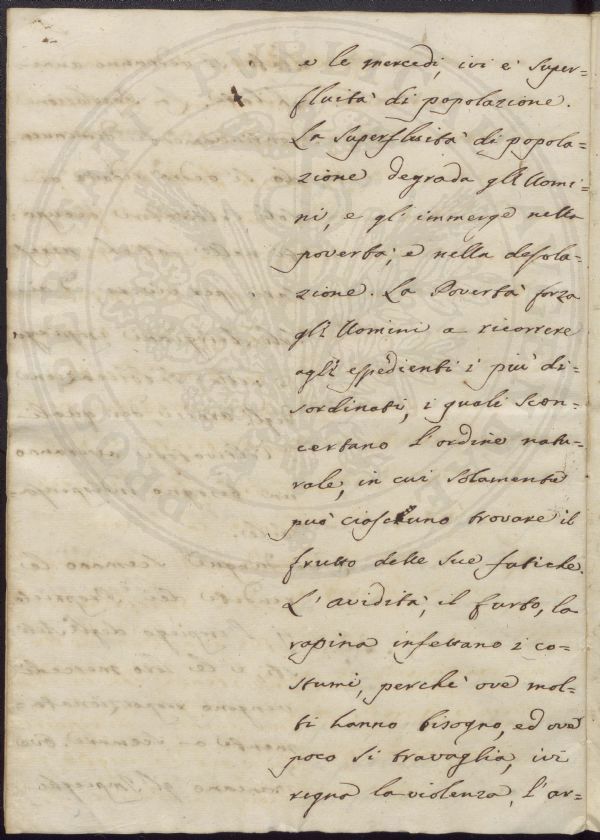 e le mercedi, ivi è super=
fluità di popolazione.
La superfluità di popola=
zione degrada gli Uomi=
ni, e gl' immerge nella
povertà, e nella desola=
zione. La Povertà forza
gli Uomini a ricorrere
agli espedienti i più di=
sordinati, i quali scon=
certano l'ordine natu=
rale, in cui solamente
può ciascuno trovare il
frutto delle sue fatiche.
L'avidità, il furto, la
rapina infettano i co=
stumi, perchè ove mol=
ti hanno bisogno, ed ove
poco si travaglia, ivi
regna la violenza, l'ar=